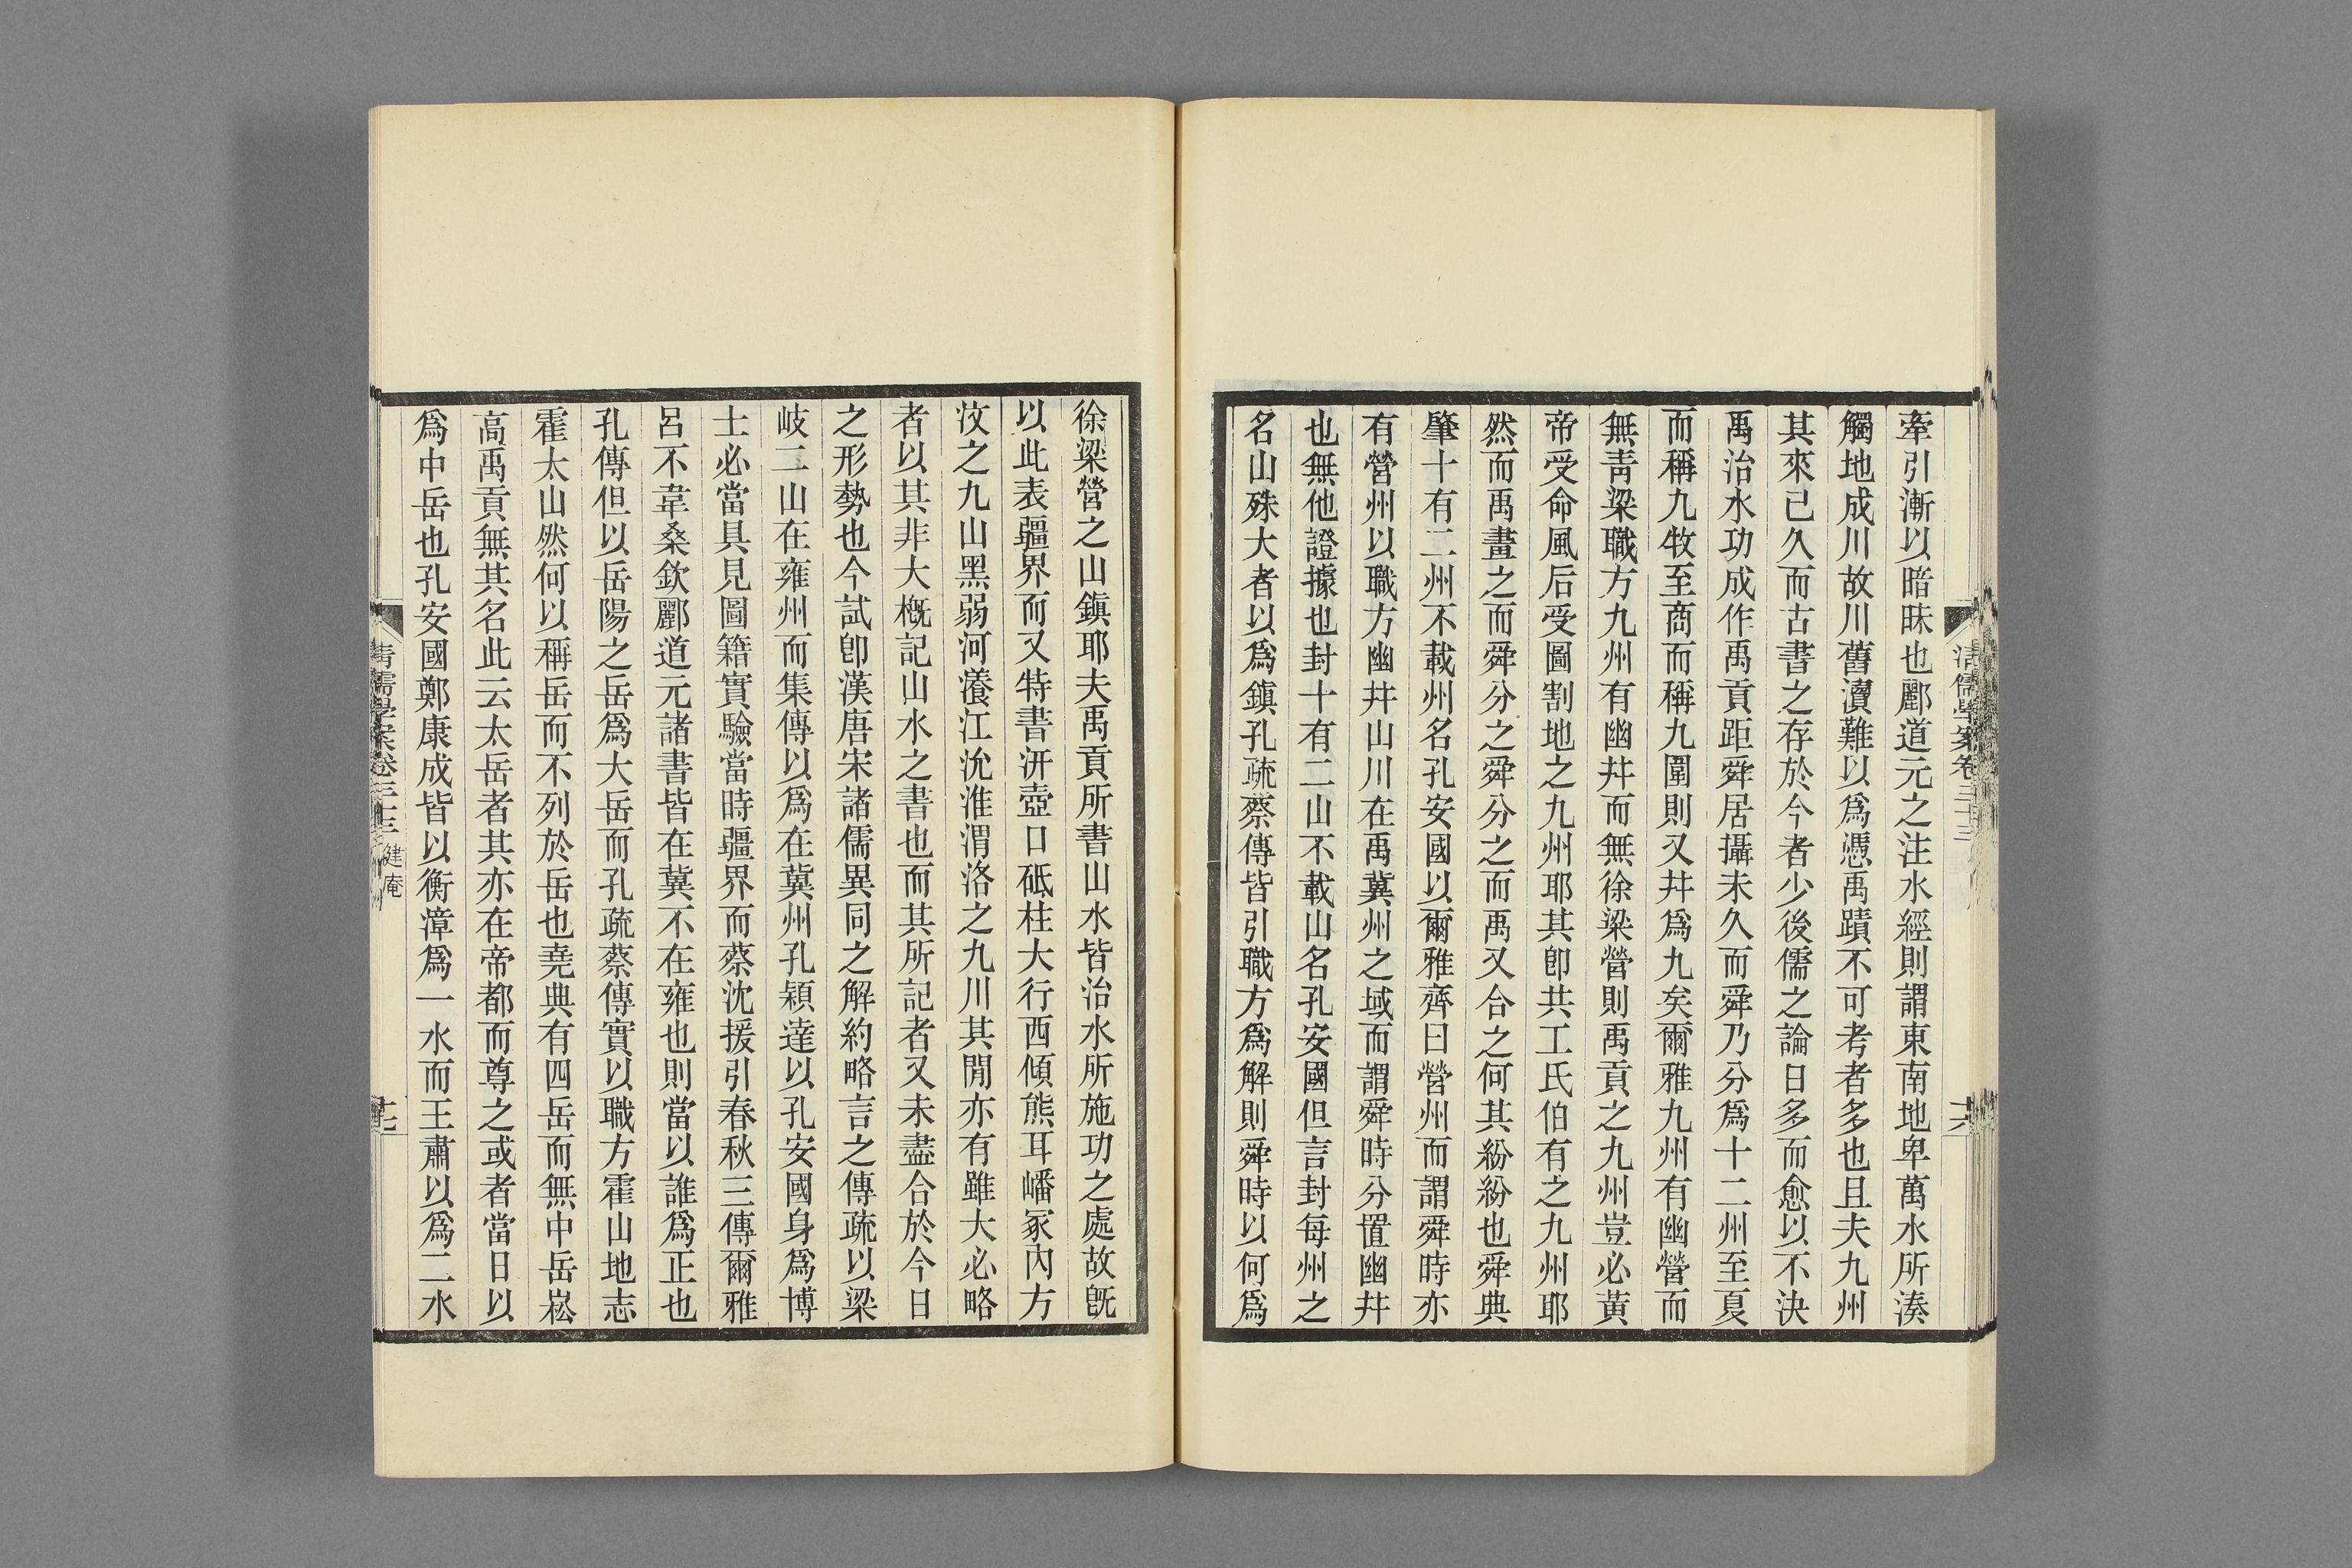 清儒學案卷三十三
十六
牽引漸以暗昧也酈道元之注水經則謂東南地卑萬水所湊
觸地成川故川舊瀆難以爲憑禹蹟不可考者多也且夫九州
其來已久而古書之存於今者少後儒之論日多而愈以不決
禹治水功成作禹貢距舜居攝未久而舜乃分爲十二州至夏
而稱九牧至商而稱九圍則又幷爲九矣爾雅九州有幽營而
無靑梁職方九州有幽幷而無徐梁營則禹貢之九州豈必黃
帝受命風后受圖割地之九州耶其卽共工氏伯有之九州耶
然而禹畫之而舜分之舜分之而禹又合之何其紛紛也舜典
肇十有二州不載州名孔安國以爾雅齊曰營州而謂舜時亦
有營州以職方幽幷山川在禹冀州之域而謂舜時分置幽幷
也無他證據也封十有二山不載山名孔安國但言封每州之
名山殊大者以爲鎭孔疏蔡傳皆引職方爲解則舜時以何爲
徐梁營之山鎭耶夫禹貢所書山水皆治水所施功之處故旣
以此表疆界而又特書汧壺口砥柱大行西傾熊耳嶓冢內方
汶之九山黑弱河瀁江沇淮渭洛之九川其閒亦有雖大必略
者以其非大槪記山水之書也而其所記者又未盡合於今日
之形勢也今試卽漢唐宋諸儒異同之解約略言之傳疏以梁
岐二山在雍州而集傳以爲在冀州孔穎達以孔安國身爲博
士必當具見圖籍實驗當時疆界而蔡沈援引春秋三傳爾雅
呂不韋桑欽酈道元諸書皆在冀不在雍也則當以誰爲正也
孔傳但以岳陽之岳爲大岳而孔疏蔡傳實以職方霍山地志
霍太山然何以稱岳而不列於岳也堯典有四岳而無中岳崧
高禹貢無其名此云太岳者其亦在帝都而尊之或者當日以
爲中岳也孔安國鄭康成皆以衡漳爲一水而王肅以爲二水
清儒學案卷三十三 健庵
十七